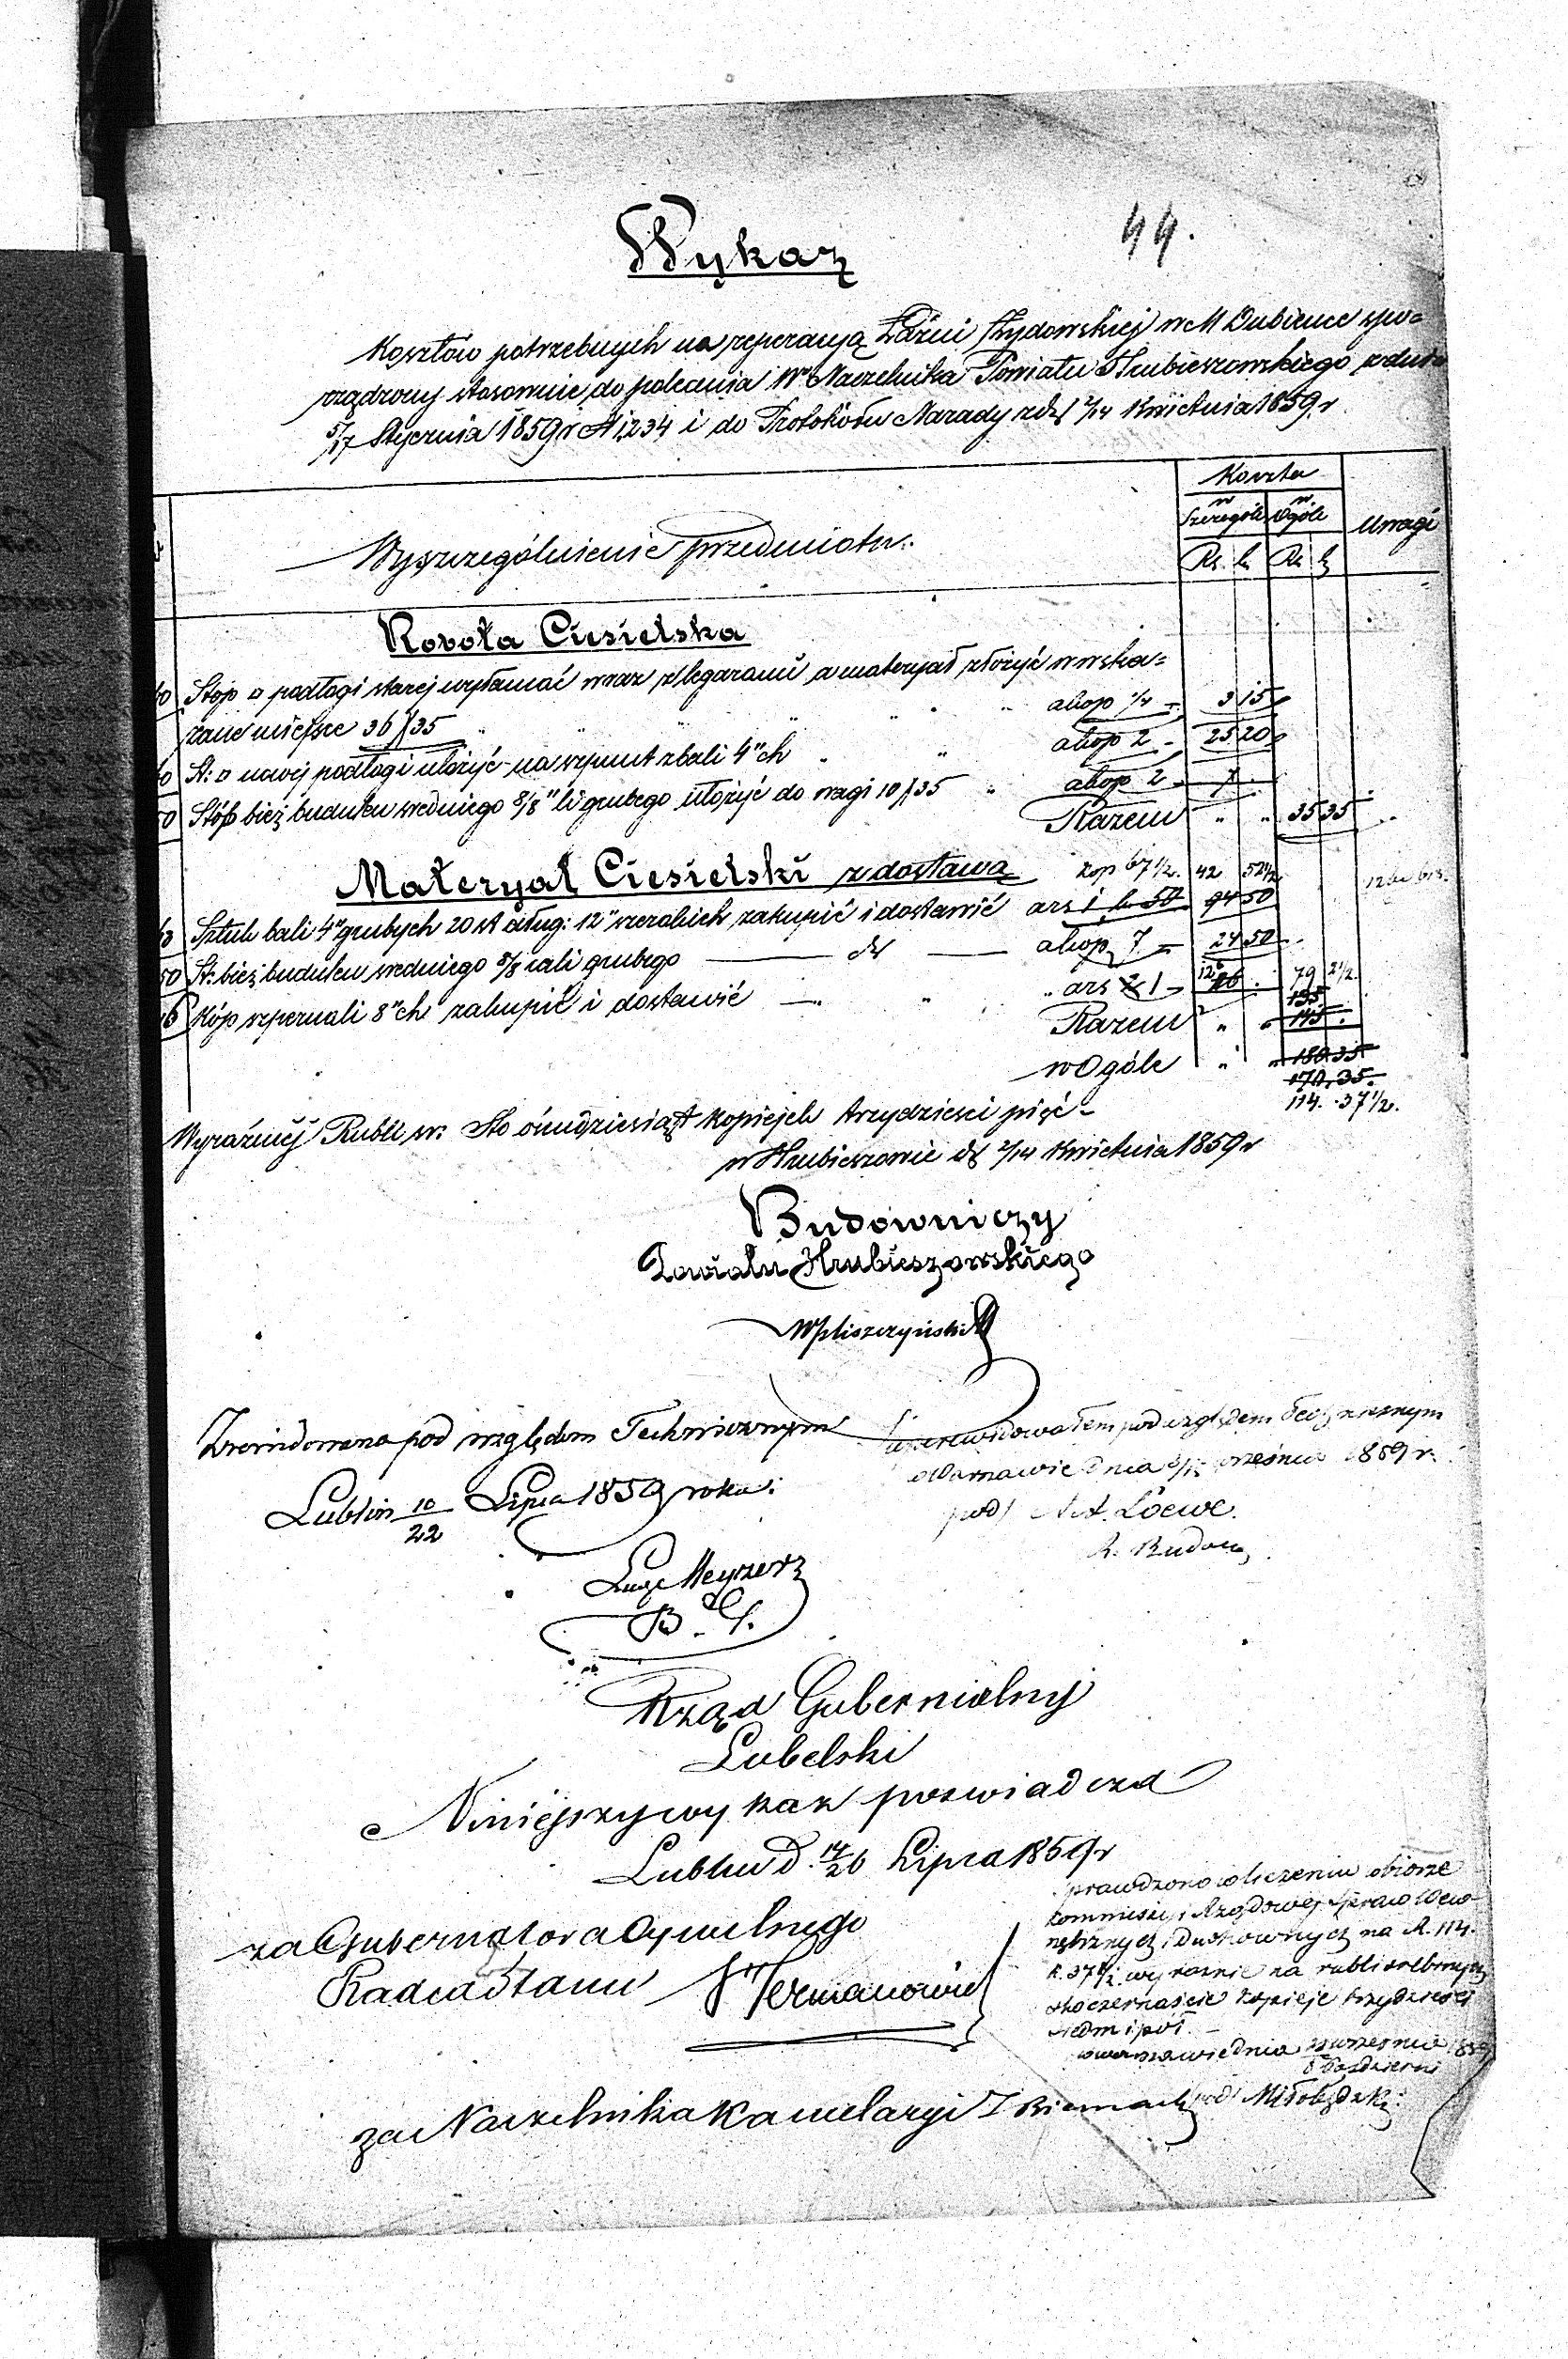 44.
Wykaz
Kosztów potrzebnych na reperacyą Łaźni Żydowskiej w M Dubience spo=
rządzony stosownie do polecenia W Naczelnika Powiatu Hrubieszowskiego z dnia
5/17 Stycznia 1859 r N 1,234 i do Protokółu Narady z d 2/14 Kwietnia 1859 r
Wyszczególnienie przedmiotu.
Koszta
w Szczególe
w Ogóle
Uwagi
Rs. k.
Rs k
Robota Ciesielska
Stóp □ podłogi starej wyłamać wraz z legarami a materyał złożyć w wska=
zane miejsce 36/35 " " " " " a kop 1/4 3 15
St: □ nowej podłogi ułożyć na szpunt z bali 4"ch " " a kop 2 25 20
Stóp bież budulcu średniego 8/8 "li grubego ułożyć do wagi 10/35 " a kop 2 7 .
Razem " " 35 35
Materyał Ciesielski z dostawą kop 67 1/2. 42 52 1/2
Sztuk bali 4" grubych 20 st dług: 12" szerokich zakupić i dostawić a rs 1 k 50 94 50
St: bież budulcu średniego 8/8 cali grubego — dt — a kop 7 24 50
Kóp szpernali 8"ch zakupić i dostawić — " " " a rs 2 1 12 16 . 79 2 1/2.
135.
Razem " " 145 .
w Ogóle " " 180 35
170. 35.
114. 37 1/2.
Wyraźniej Rubli sr: Sto ósmdziesiąt kopiejek trzydzieści pięć
w Hrubieszowie d 2/14 Kwietnia 1859 r
Budowniczy
Powiatu Hrubieszowskiego
W Pliszczyński
Zrewidowana pod względem Technicznym
Lublin 10/22 Lipca 1859 roku.
B. G.
Superrewidowałem pod względem technicznym
w Warszawie dnia wrzesnia 1859 r.
pod/ A. Loewe.
R. Budow.
Rząd Gubernialny
Lubelski
Niniejszy wykaz poswiadcza
Lublin d. 14/26 Lipca 1859 r
za Gubernatora Cywilnego
Radca Stanu
za Naczelnika Kancelaryi
Sprawdzono w liczeniu w biorze
Kommissyi Rządowej Spraw Wew
nętrznych i Duchownych na R. 114.
k. 37 1/2 wyraznie na rubli srebrnych
sto czternaście kopiejek trzydzieści
siedm i pół. —
w Warszawie dnia wrzesnia 1859
Październi
pod/ Miłobędzki